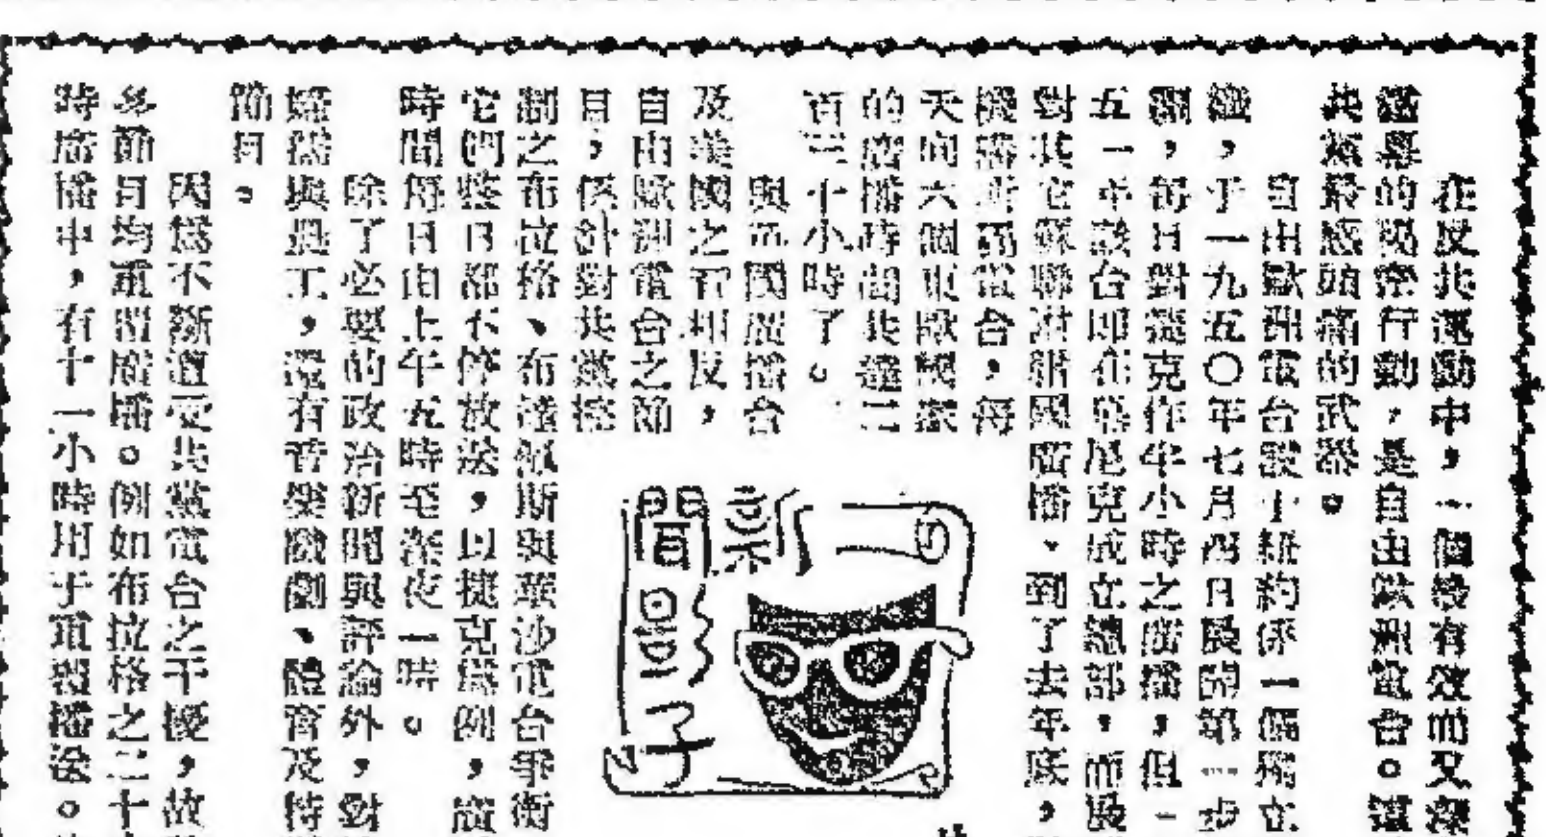 在反共運動中，一個最有效而又深
鐵幕的揭密行動，是自由歐洲電台。這
共黨最感頭痛的武器。
自由歐洲電台設于紐約係一個獨立
織，于一九五〇年七月四日展開第一步
，每日對捷克作半小時之廣播，但一
五一年該台即在慕尼克成立總部，而及
對其它蘇聯附庸國廣播、到了去年底，
電台，每
天向六個東歐國家
的廣播時間共達二
百三十小時了。
與五國廣播台
及美國之音相反，
自由歐洲電台之節
目，係針對共黨控
制之布拉格、布達佩斯與華沙電台爭衡
它們整日都不停放送，以捷克為例，廣
時間每日由上午五時至深夜一時。
除了必要的政治新聞與評論外，對
婦孺與農工，還有音樂戲劇、體育及特
節目。
因為不斷遭受共黨電台之干擾，故
多節目均重習廣播。例如布拉格之二十
時廣播中，有十一小時用于重覆播送。
新聞影子